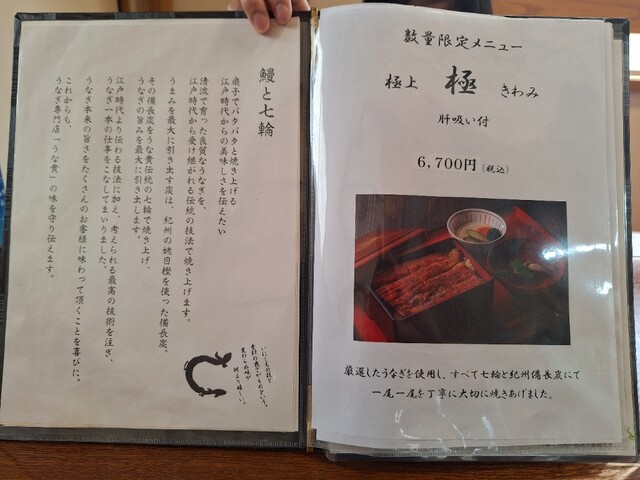 鰻と七輪
扇子でパタパタと焼き上げる
江戸時代からの美味しさを伝えたい
清流で育った良質なうなぎを、
江戸時代から受け継がれる伝統の技法で焼き上げます。
うまみを最大に引き出す炭は、紀州の姥目樫を使った備長炭。
その備長炭をうな貴伝統の七輪で焼き上げ、
うなぎの旨みを最大に引き出します。
江戸時代より伝わる技法に加え、考えられる最高の技術を注ぎ、
うなぎ一本の仕事をこなしてまいりました。
うなぎ本来の旨さをたくさんのお客様に味わって頂くことを喜びに。
これからも、
うなぎ専門店「うな貴」の味を守り伝えます。
数量限定メニュー
極上 極 きわみ
肝吸い付
6,700円(税込)
厳選したうなぎを使用し、すべて七輪と紀州備長炭にて
一尾一尾を丁寧に大切に焼きあげました。